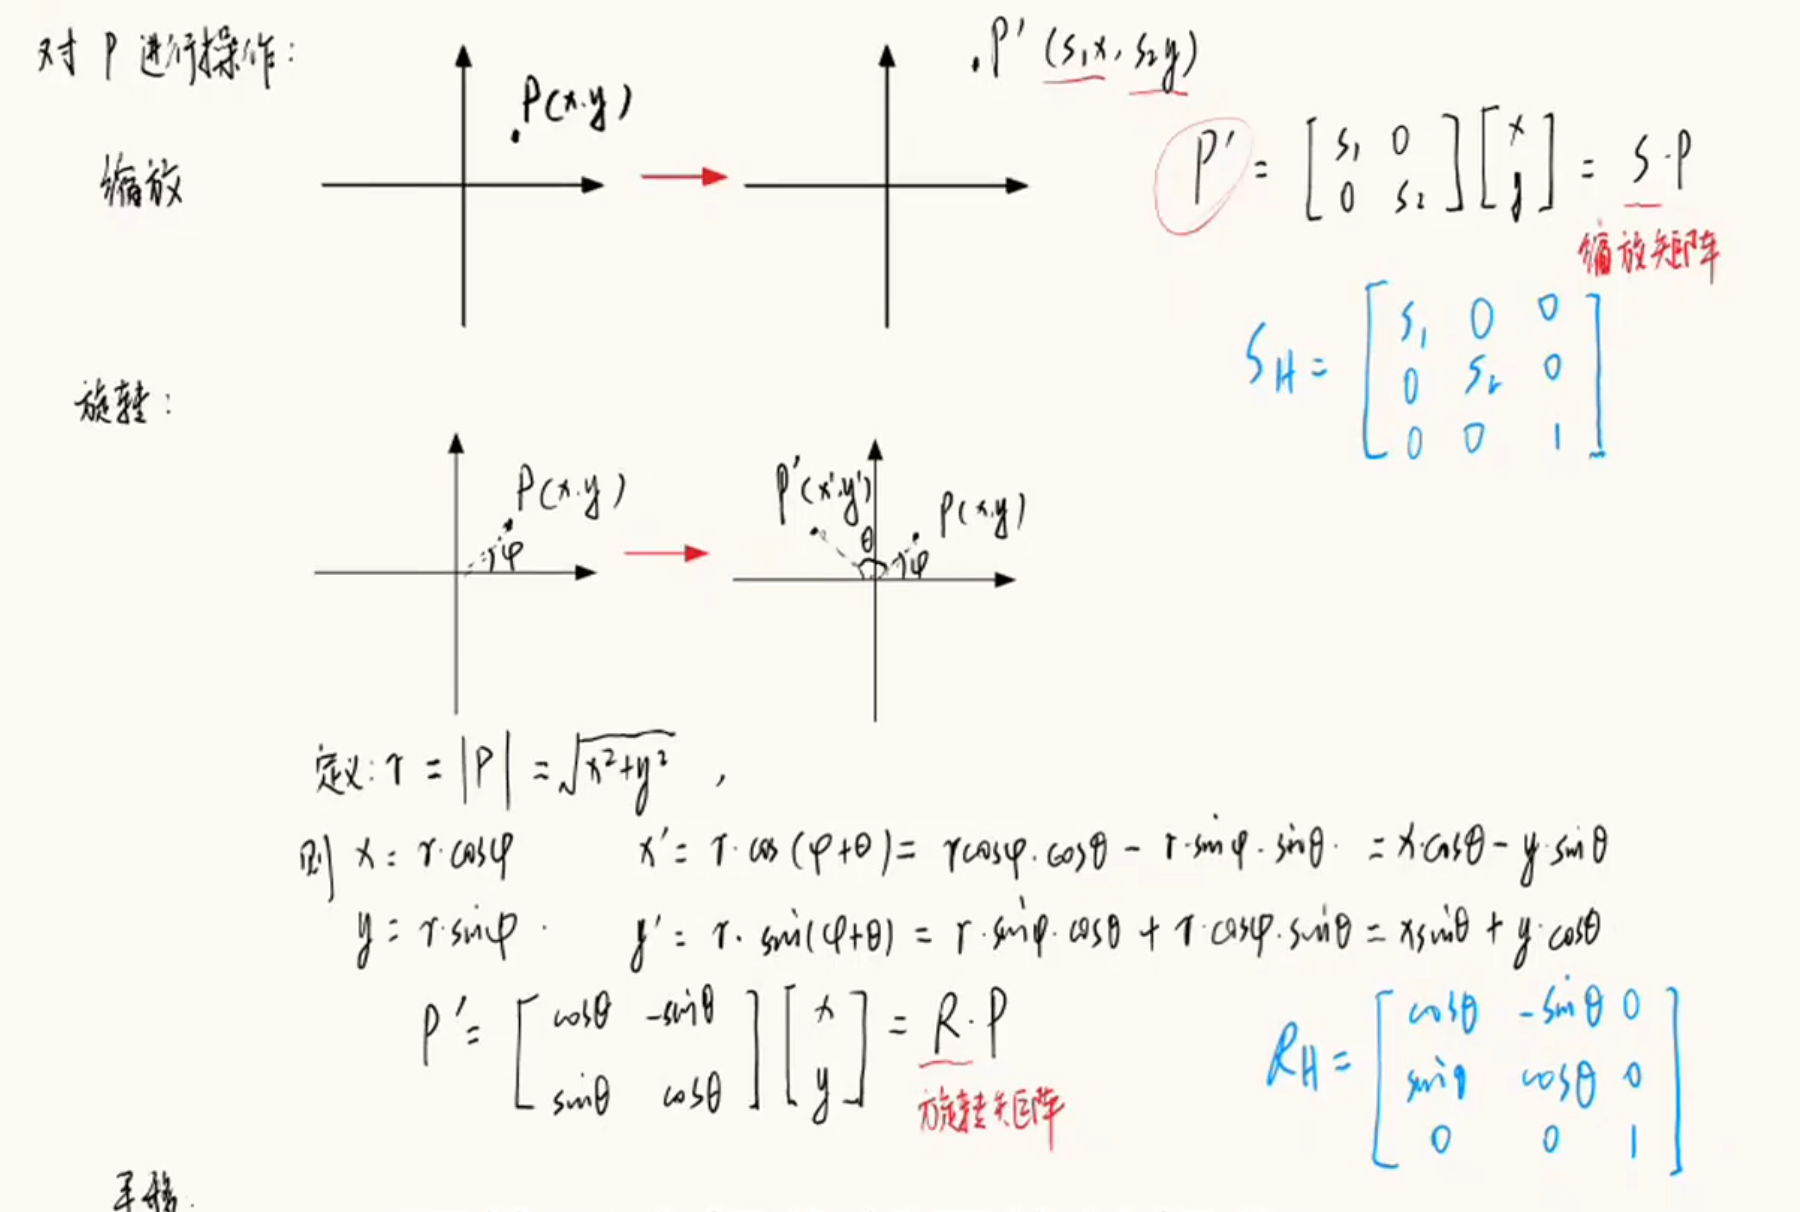 对 P 进行操作:
P(x.y)
.P'(s₁x, s₂y)
缩放
P' = [ s₁ 0 ; 0 s₂ ] [ x ; y ] = S·P
缩放矩阵
S_H = [ s₁ 0 0 ; 0 s₂ 0 ; 0 0 1 ]
旋转:
P(x.y)
φ
P'(x'.y')
θ
P(x.y)
φ
定义: r = |P| = √(x²+y²) ,
则 x = r·cosφ x' = r·cos(φ+θ) = rcosφ·cosθ - r·sinφ·sinθ· = x·cosθ - y·sinθ
y = r·sinφ · y' = r·sin(φ+θ) = r·sinφ·cosθ + r·cosφ·sinθ = xsinθ + y·cosθ
P' = [ cosθ -sinθ ; sinθ cosθ ] [ x ; y ] = R·P
旋转矩阵
R_H = [ cosθ -sinθ 0 ; sinθ cosθ 0 ; 0 0 1 ]
平移: